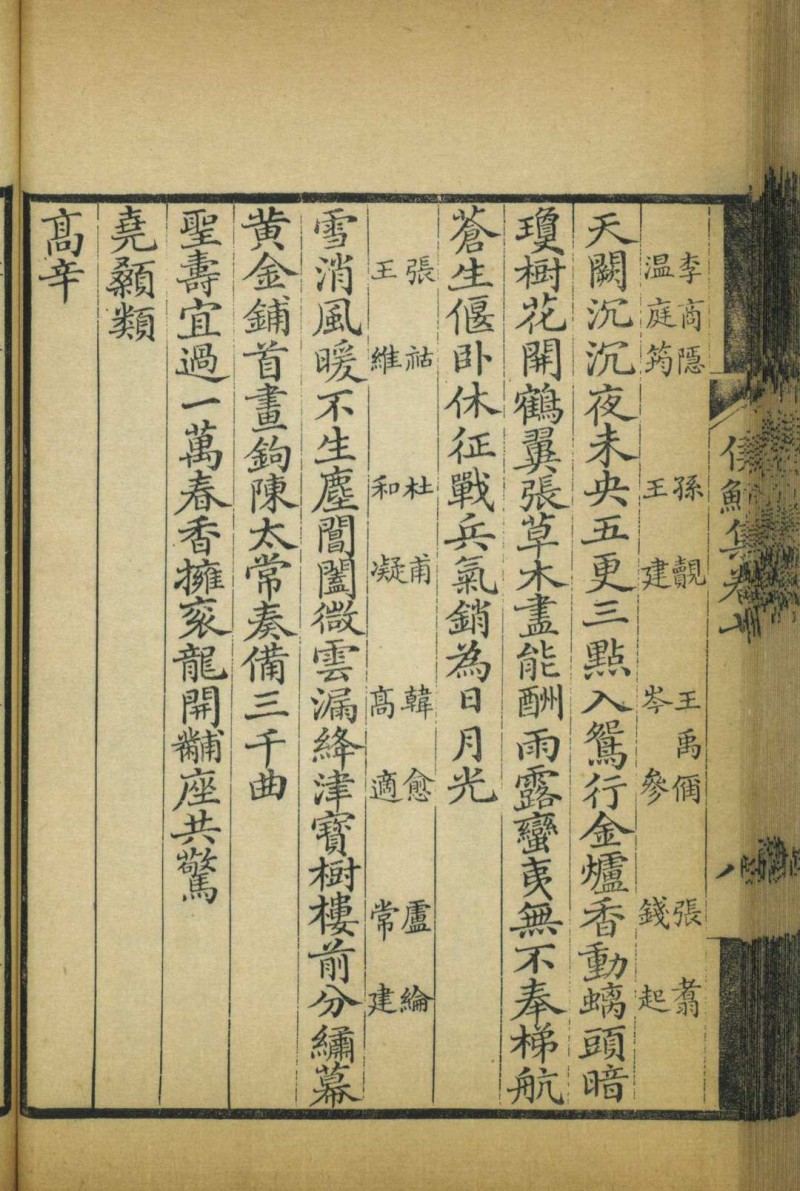 侯鯖集卷
李商隱　孫覿　王禹偁　張翥
温庭筠　王建　岑參　錢起
天闕沉沉夜未央五更三點入鴛行金爐香動螭頭暗
瓊樹花開鶴翼張草木盡能酬雨露蠻夷無不奉梯航
蒼生偃臥休征戰兵氣銷為日月光
張祜　杜甫　韓愈　盧綸
王維　和凝　高適　常建
雪消風暖不生塵閶闔微雲漏絳津寶樹樓前分繡幕
黄金鋪首畫鉤陳太常奏備三千曲
聖壽宜過一萬春香擁衮龍開黼座共驚
堯顙類
高辛